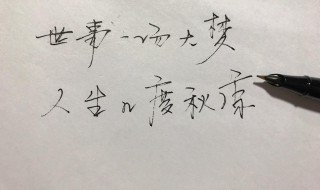 世事一场大梦
人生几度秋凉